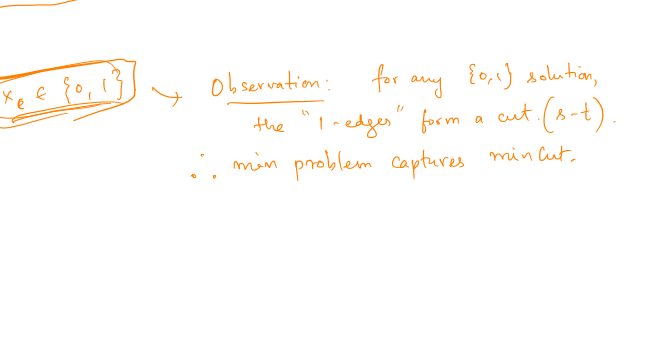 x_e ∈ {0,1} → Observation: for any {0,1} solution,
the "1-edges" form a cut. (s-t).
∴ min problem captures mincut.